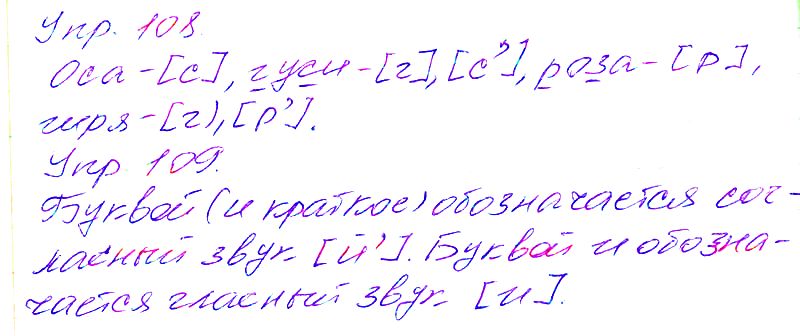 Упр. 108.
Оса - [с], гуси - [г], [с'], роза - [р],
гиря - [г), [р'].
Упр. 109.
Буквой (и краткое) обозначается сог-
ласный звук [й']. Буквой и обозна-
чается гласный звук [и].